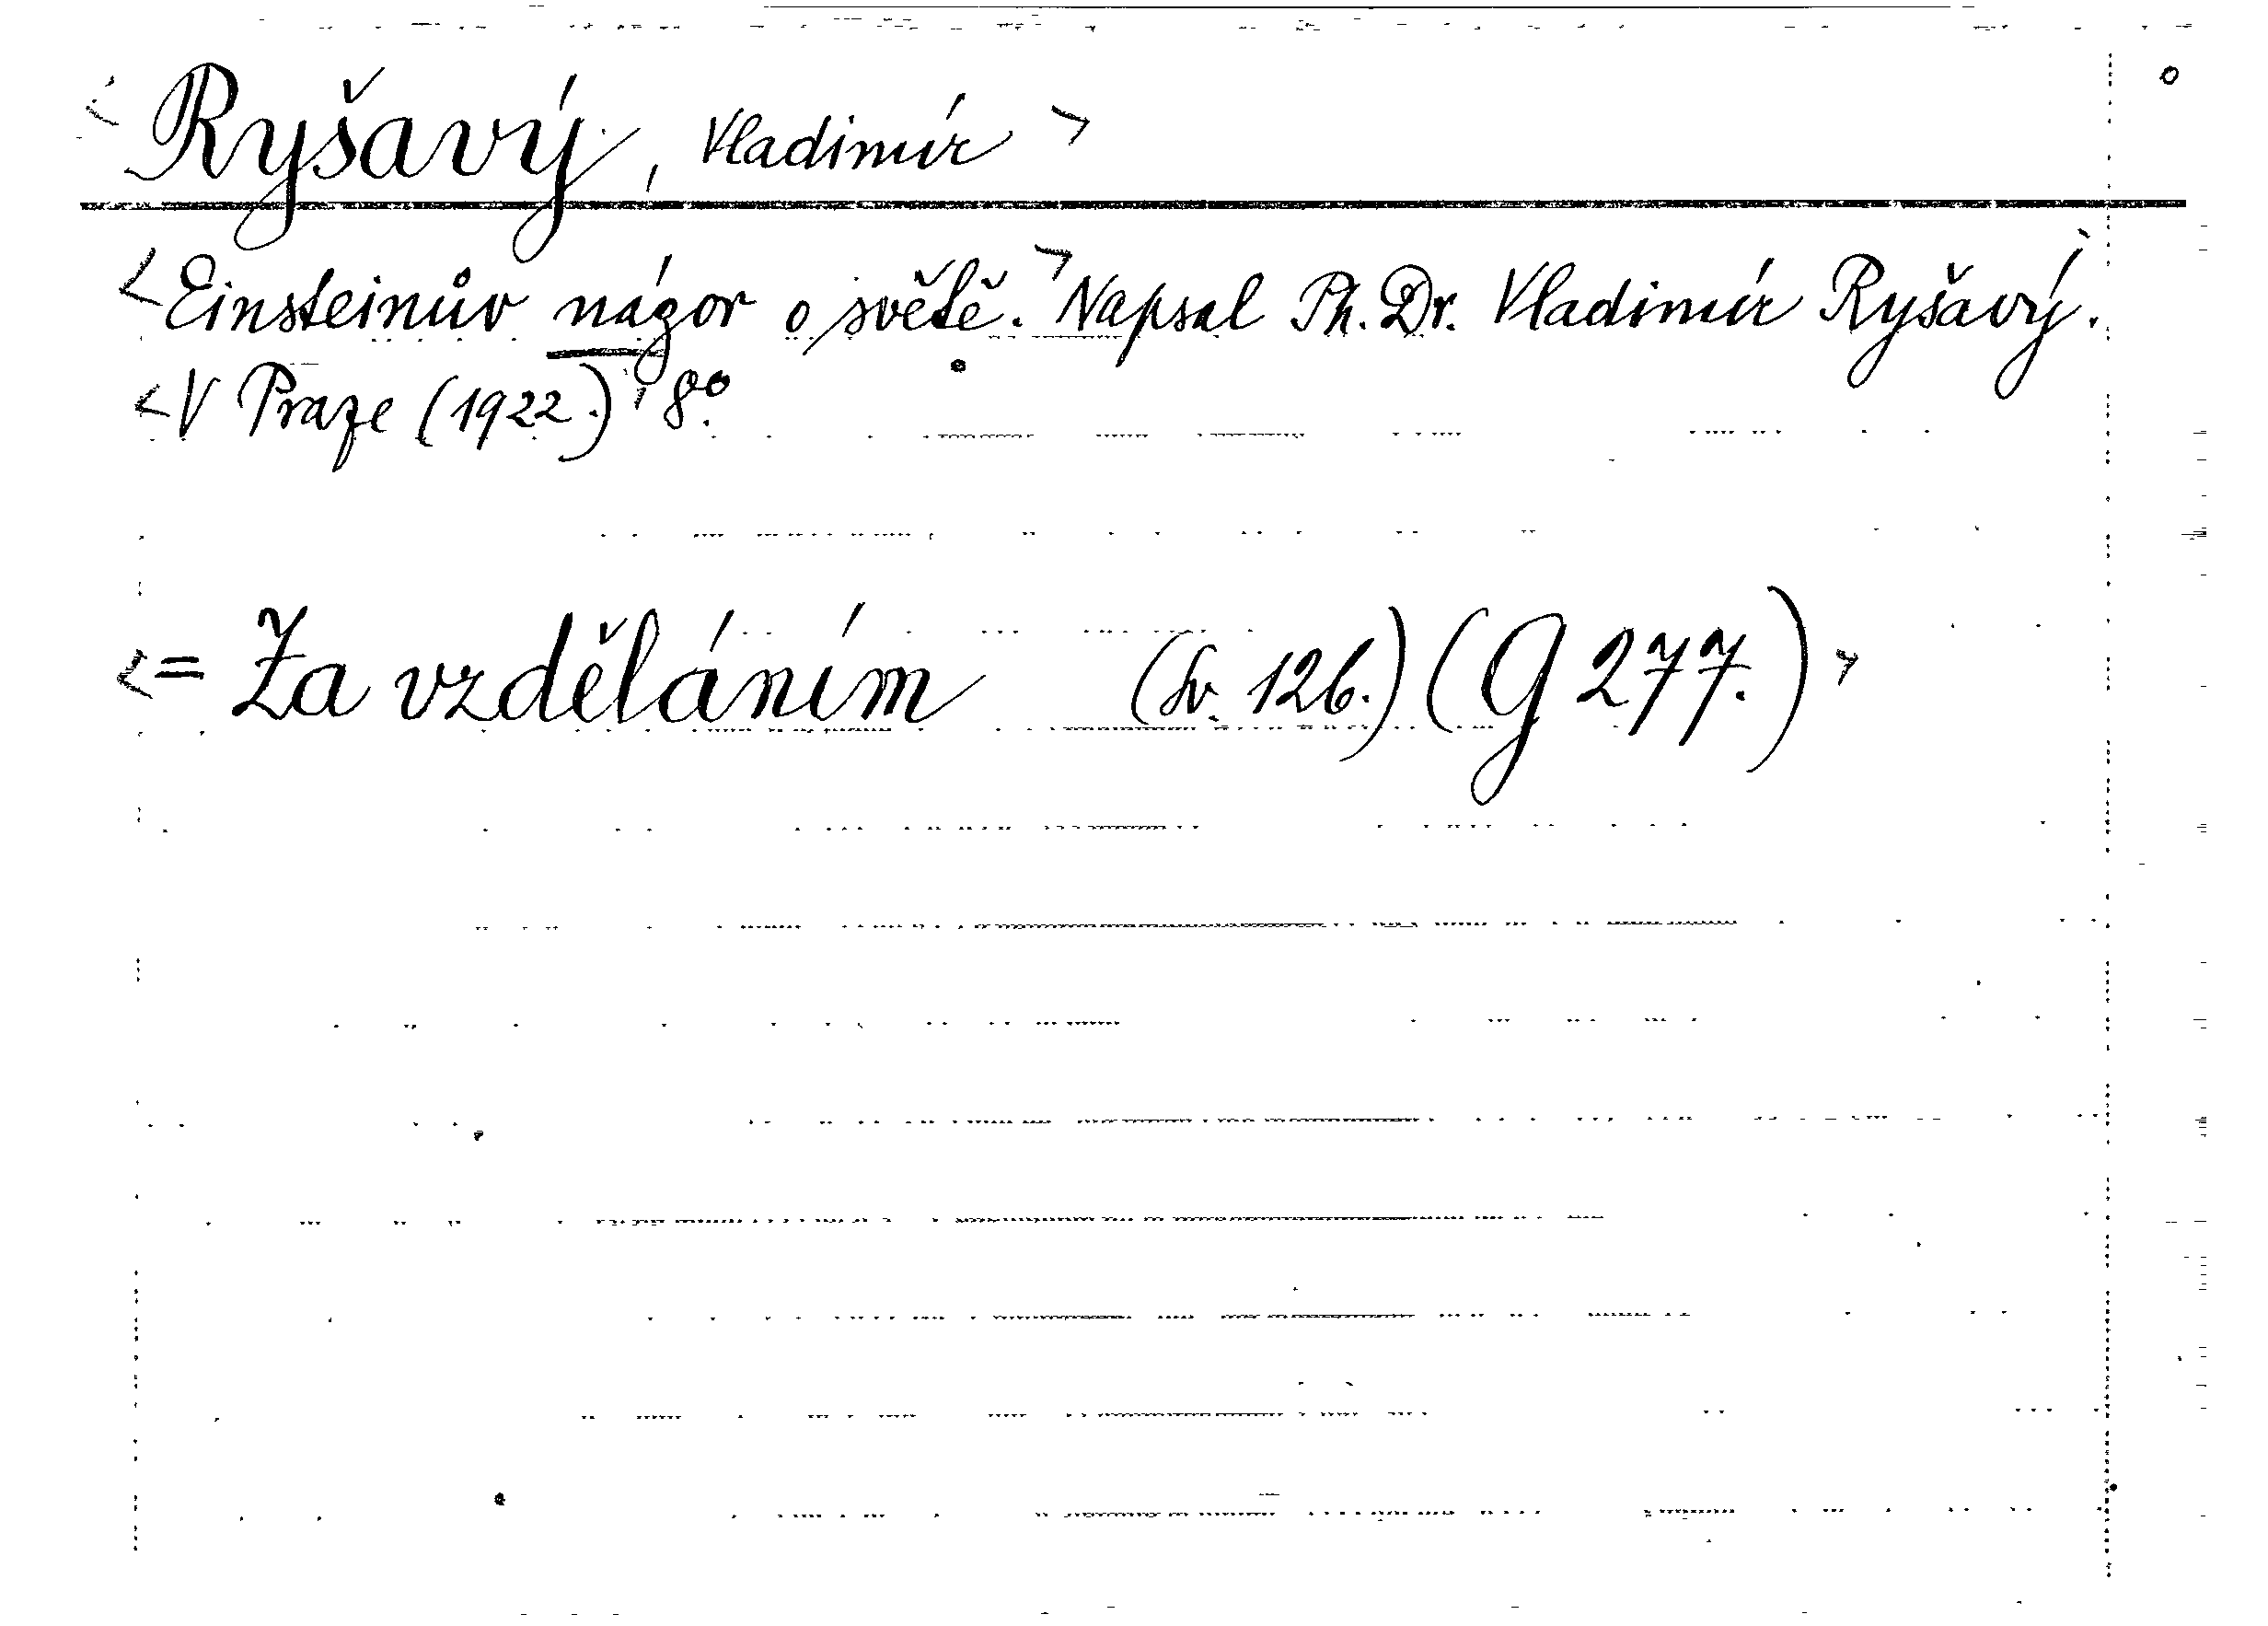 <Ryšavý, Vladimír>
<Einsteinův názor o světě.> Napsal Ph. Dr. Vladimír Ryšavý.
<V Praze (1922.) 8º.
<= Za vzděláním (Sv. 126.) (G 277.)>